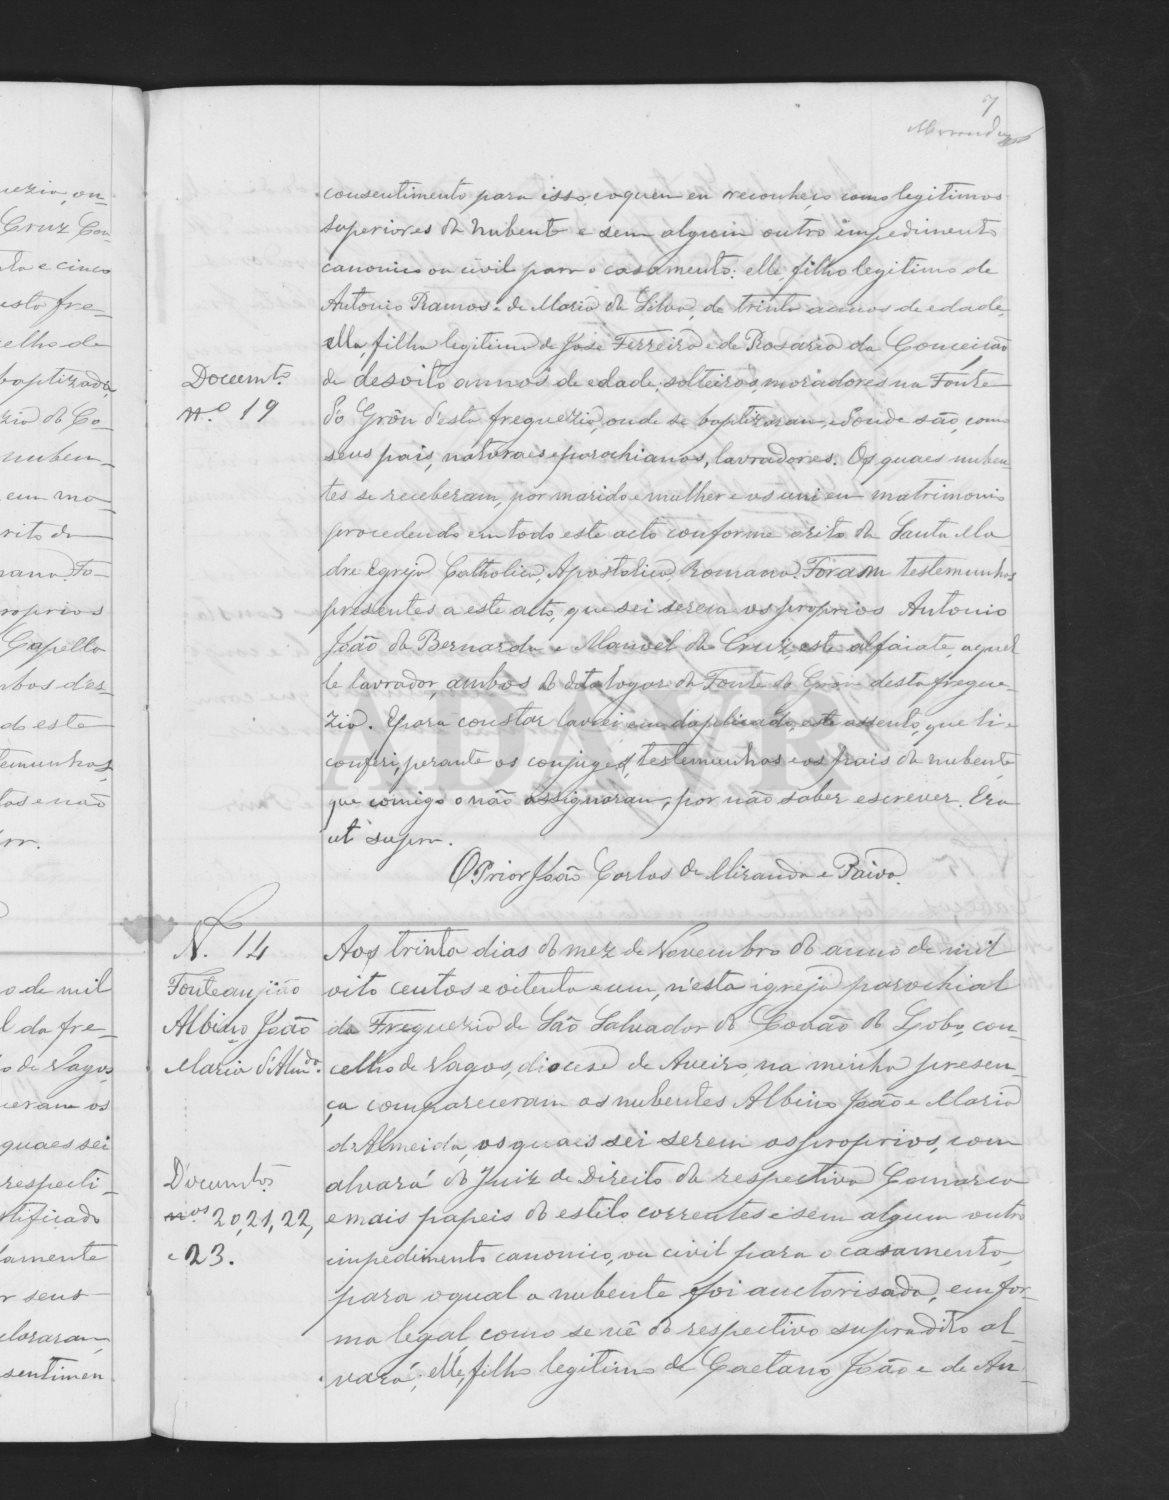 7
Miranda
consentimento para isso e a quem eu reconheço como legitimos
superiores da nubente e sem alguem outro impedimento
canonico ou civil para o casamento: elle filho legitimo de
Antonio Ramos e de Maria da Silva, de trinta annos de edade,
ella, filha legitima de José Ferreira e de Rosaria da Conceição
de desoito annos de edade, solteiros, moradores na Fonte
do Grôu d'esta freguezia, onde se baptizaram, e donde são, com
seus pais, naturaes e parochianos, lavradores. Os quaes nuben-
tes se receberam, por marido e mulher e os uni em matrimonio
procedendo em todo este acto conforme o rito da Santa Ma-
dre Egreja Catholica, Apostolica, Romana. Foram testemunhas
presentes a este acto, que sei serem os proprios Antonio
João da Bernarda e Manoel da Cruz, este alfaiate, aquel-
le lavrador, ambos do dito logar da Fonte do Grou desta fregue-
zia. E para constar lavrei em duplicado, este assento, que li e
conferi, perante os conjuges, testemunhas e os pais da nubente
que comigo o não assignaram, por não saber escrever. Era
ut supra.
O Prior João Carlos de Miranda e Paiva.
Documto.
nº 19
N. 14
Fonteangião
Albino João
Maria d'Almda.
Documtos
nos 20, 21, 22,
e 23.
Aos trinta dias do mez de Novembro do anno de mil
oito centos e oitenta e um, n'esta igreja parochial
da Freguezia de São Salvador do Covão do Lobo, con-
celho de Vagos, diocese de Aveiro, na minha presen-
ça compareceram os nubentes Albino João e Maria
d'Almeida, os quais sei serem os proprios, com
alvará do Juiz de Direito da respectiva Comarca
e mais papeis do estilo correntes e sem algum outro
impedimento canonico, ou civil para o casamento,
para o qual a nubente foi auctorisada, em for-
ma legal, como se vê do respectivo supradito al-
vará; elle, filho legitimo de Caetano João e de An-